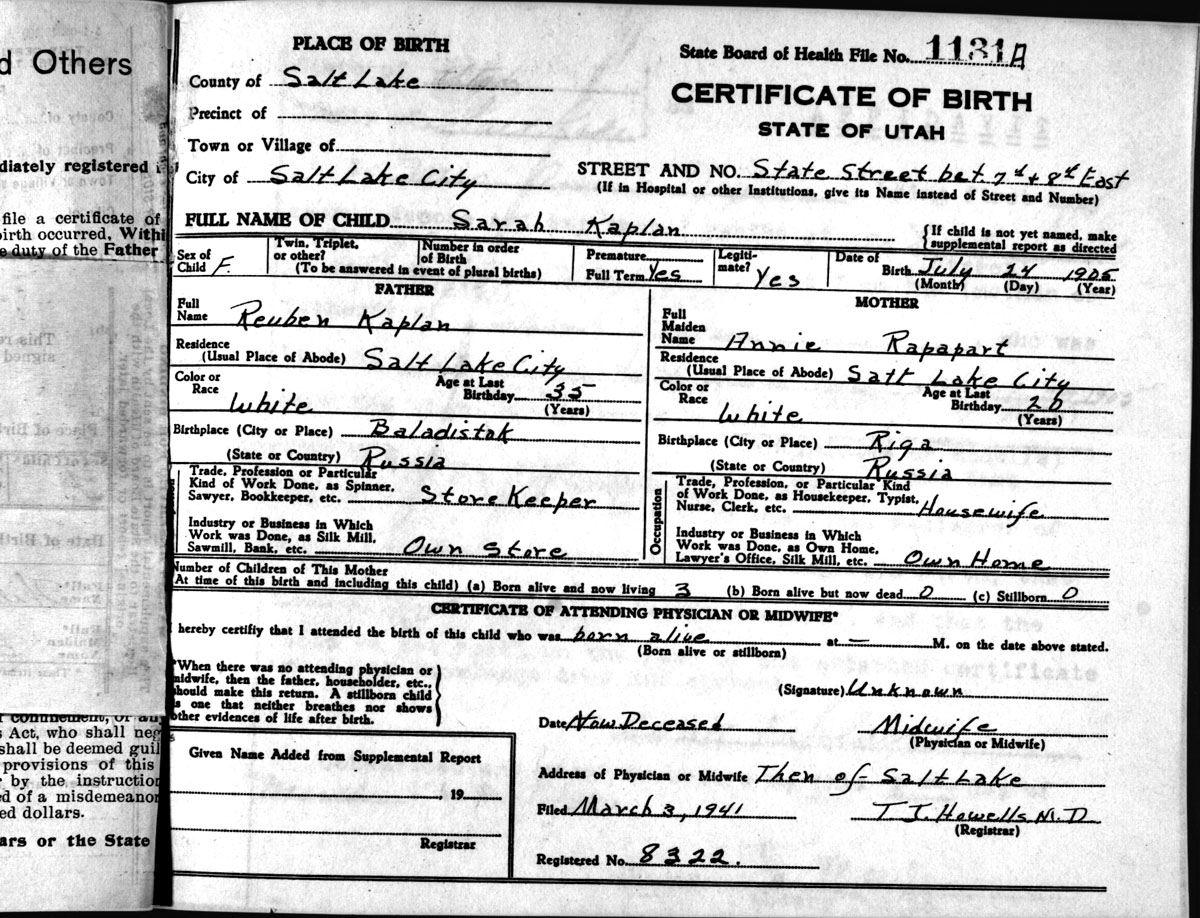 d Others
diately registered i
file a certificate of
birth occurred, Withi
e duty of the Father
confinement, or any
s Act, who shall neg
shall be deemed guil
provisions of this
r by the instruction
ed of a misdemeanor
ed dollars.
ars or the State
PLACE OF BIRTH
State Board of Health File No. 1131A
County of Salt Lake
CERTIFICATE OF BIRTH
Precinct of
STATE OF UTAH
Town or Village of
City of Salt Lake City
STREET AND NO. State Street bet 7th & 8th East
(If in Hospital or other Institutions, give its Name instead of Street and Number)
FULL NAME OF CHILD Sarah Kaplan
{If child is not yet named, make
supplemental report as directed
Sex of Child F.
Twin, Triplet, or other?
Number in order of Birth
(To be answered in event of plural births)
Premature
Full Term Yes
Legiti-mate? Yes
Date of Birth July 24 1905
(Month) (Day) (Year)
FATHER
Full Name Reuben Kaplan
Residence
(Usual Place of Abode) Salt Lake City
Color or Race White
Age at Last Birthday 35
(Years)
Birthplace (City or Place) Baladistok
(State or Country) Russia
Trade, Profession or Particular
Kind of Work Done, as Spinner,
Sawyer, Bookkeeper, etc. Store Keeper
Industry or Business in Which
Work was Done, as Silk Mill,
Sawmill, Bank, etc. Own Store
MOTHER
Full Maiden Name Annie Rapapart
Residence
(Usual Place of Abode) Salt Lake City
Color or Race White
Age at Last Birthday
(Years)
Birthplace (City or Place) Riga
(State or Country) Russia
Occupation
Trade, Profession, or Particular Kind
of Work Done, as Housekeeper, Typist,
Nurse, Clerk, etc. Housewife
Industry or Business in Which
Work was Done, as Own Home,
Lawyer's Office, Silk Mill, etc. Own Home
Number of Children of This Mother
At time of this birth and including this child) (a) Born alive and now living 3 (b) Born alive but now dead 0 (c) Stillborn 0
CERTIFICATE OF ATTENDING PHYSICIAN OR MIDWIFE*
hereby certify that I attended the birth of this child who was born alive at — M. on the date above stated.
(Born alive or stillborn)
*When there was no attending physician or
midwife, then the father, householder, etc.,
should make this return. A stillborn child
is one that neither breathes nor shows
other evidences of life after birth.
(Signature) Unknown
Date Now Deceased Midwife
(Physician or Midwife)
Given Name Added from Supplemental Report
, 19
Registrar
Address of Physician or Midwife Then of Salt Lake
Filed March 3, 1941 T. J. Howells M.D
(Registrar)
Registered No. 8322.